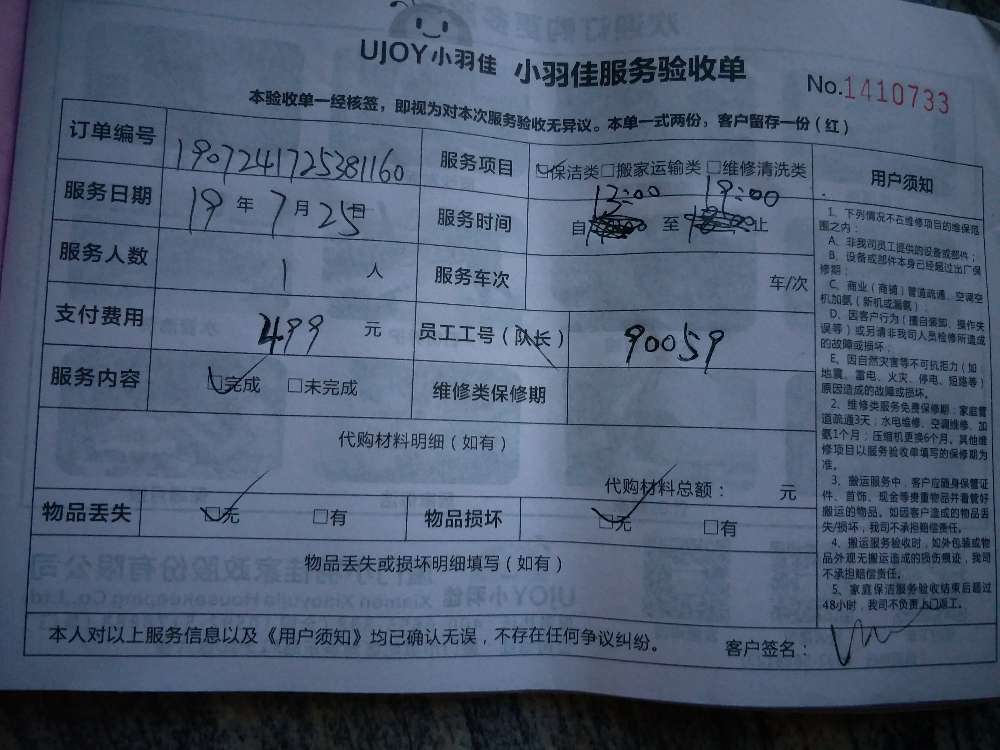 UJOY小羽佳 小羽佳服务验收单
No.1410733
本验收单一经核签，即视为对本次服务验收无异议。本单一式两份，客户留存一份（红）
订单编号 1907241725381160 服务项目 保洁类 搬家运输类 维修清洗类
服务日期 19年7月25日 服务时间 13:00 19:00
自 至 止
服务人数 1 人 服务车次 车/次
支付费用 499 元 员工工号（队长） 90059
服务内容 完成 未完成 维修类保修期
代购材料明细（如有）
代购材料总额： 元
物品丢失 无 有 物品损坏 无 有
物品丢失或损坏明细填写（如有）
本人对以上服务信息以及《用户须知》均已确认无误，不存在任何争议纠纷。 客户签名：
用户须知
1、下列情况不在维修项目的维保范
围之内：
A、非我司员工提供的设备或部件；
B、设备或部件本身已经超过出厂保
修期；
C、商业（商铺）管道疏通、空调空
机加氨（新机或漏氨）；
D、因客户行为（擅自装卸、操作失
误等）或另请非我司人员检修所造成
的故障或损坏；
E、因自然灾害等不可抗拒力（如
地震、雷电、火灾、停电、短路等）
原因造成的故障或损坏。
2、维修类服务免费保修期：家庭管
道疏通3天；水电维修、空调维修、加
氨1个月；压缩机更换6个月。其他维
修项目以服务验收单填写的保修期为
准。
3、搬运服务中，客户应随身保管证
件、首饰、现金等贵重物品并看管好
搬运的物品。如因客户造成的物品丢
失/损坏，我司不承担赔偿责任。
4、搬运服务验收时，如外包装或物
品外观无搬运造成的损伤痕迹，我司
不承担赔偿责任。
5、家庭保洁服务验收结束后超过
48小时，我司不负责上门返工。